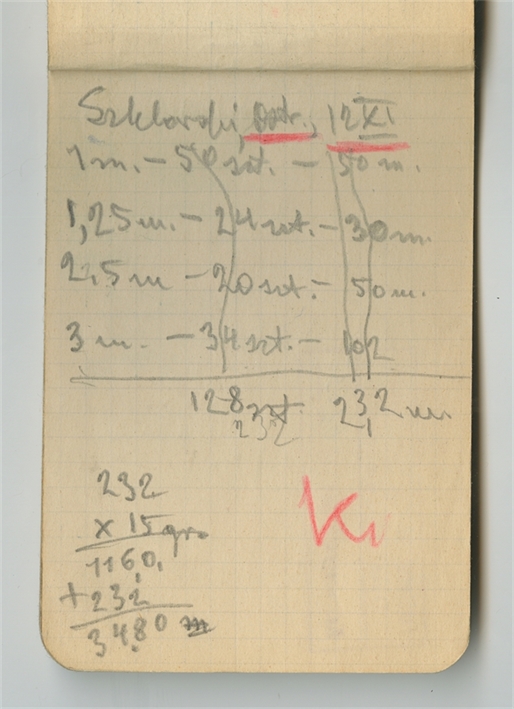 Szklarski, Ostr., 12 XI
1 m. - 50 szt. - 50 m.
1,25 m. - 24 szt. - 30 m.
2,5 m - 20 szt. - 50 m.
3 m. - 34 szt. - 102
128 szt. 232 m
232
232
x 15 gr
1160
+232
3480